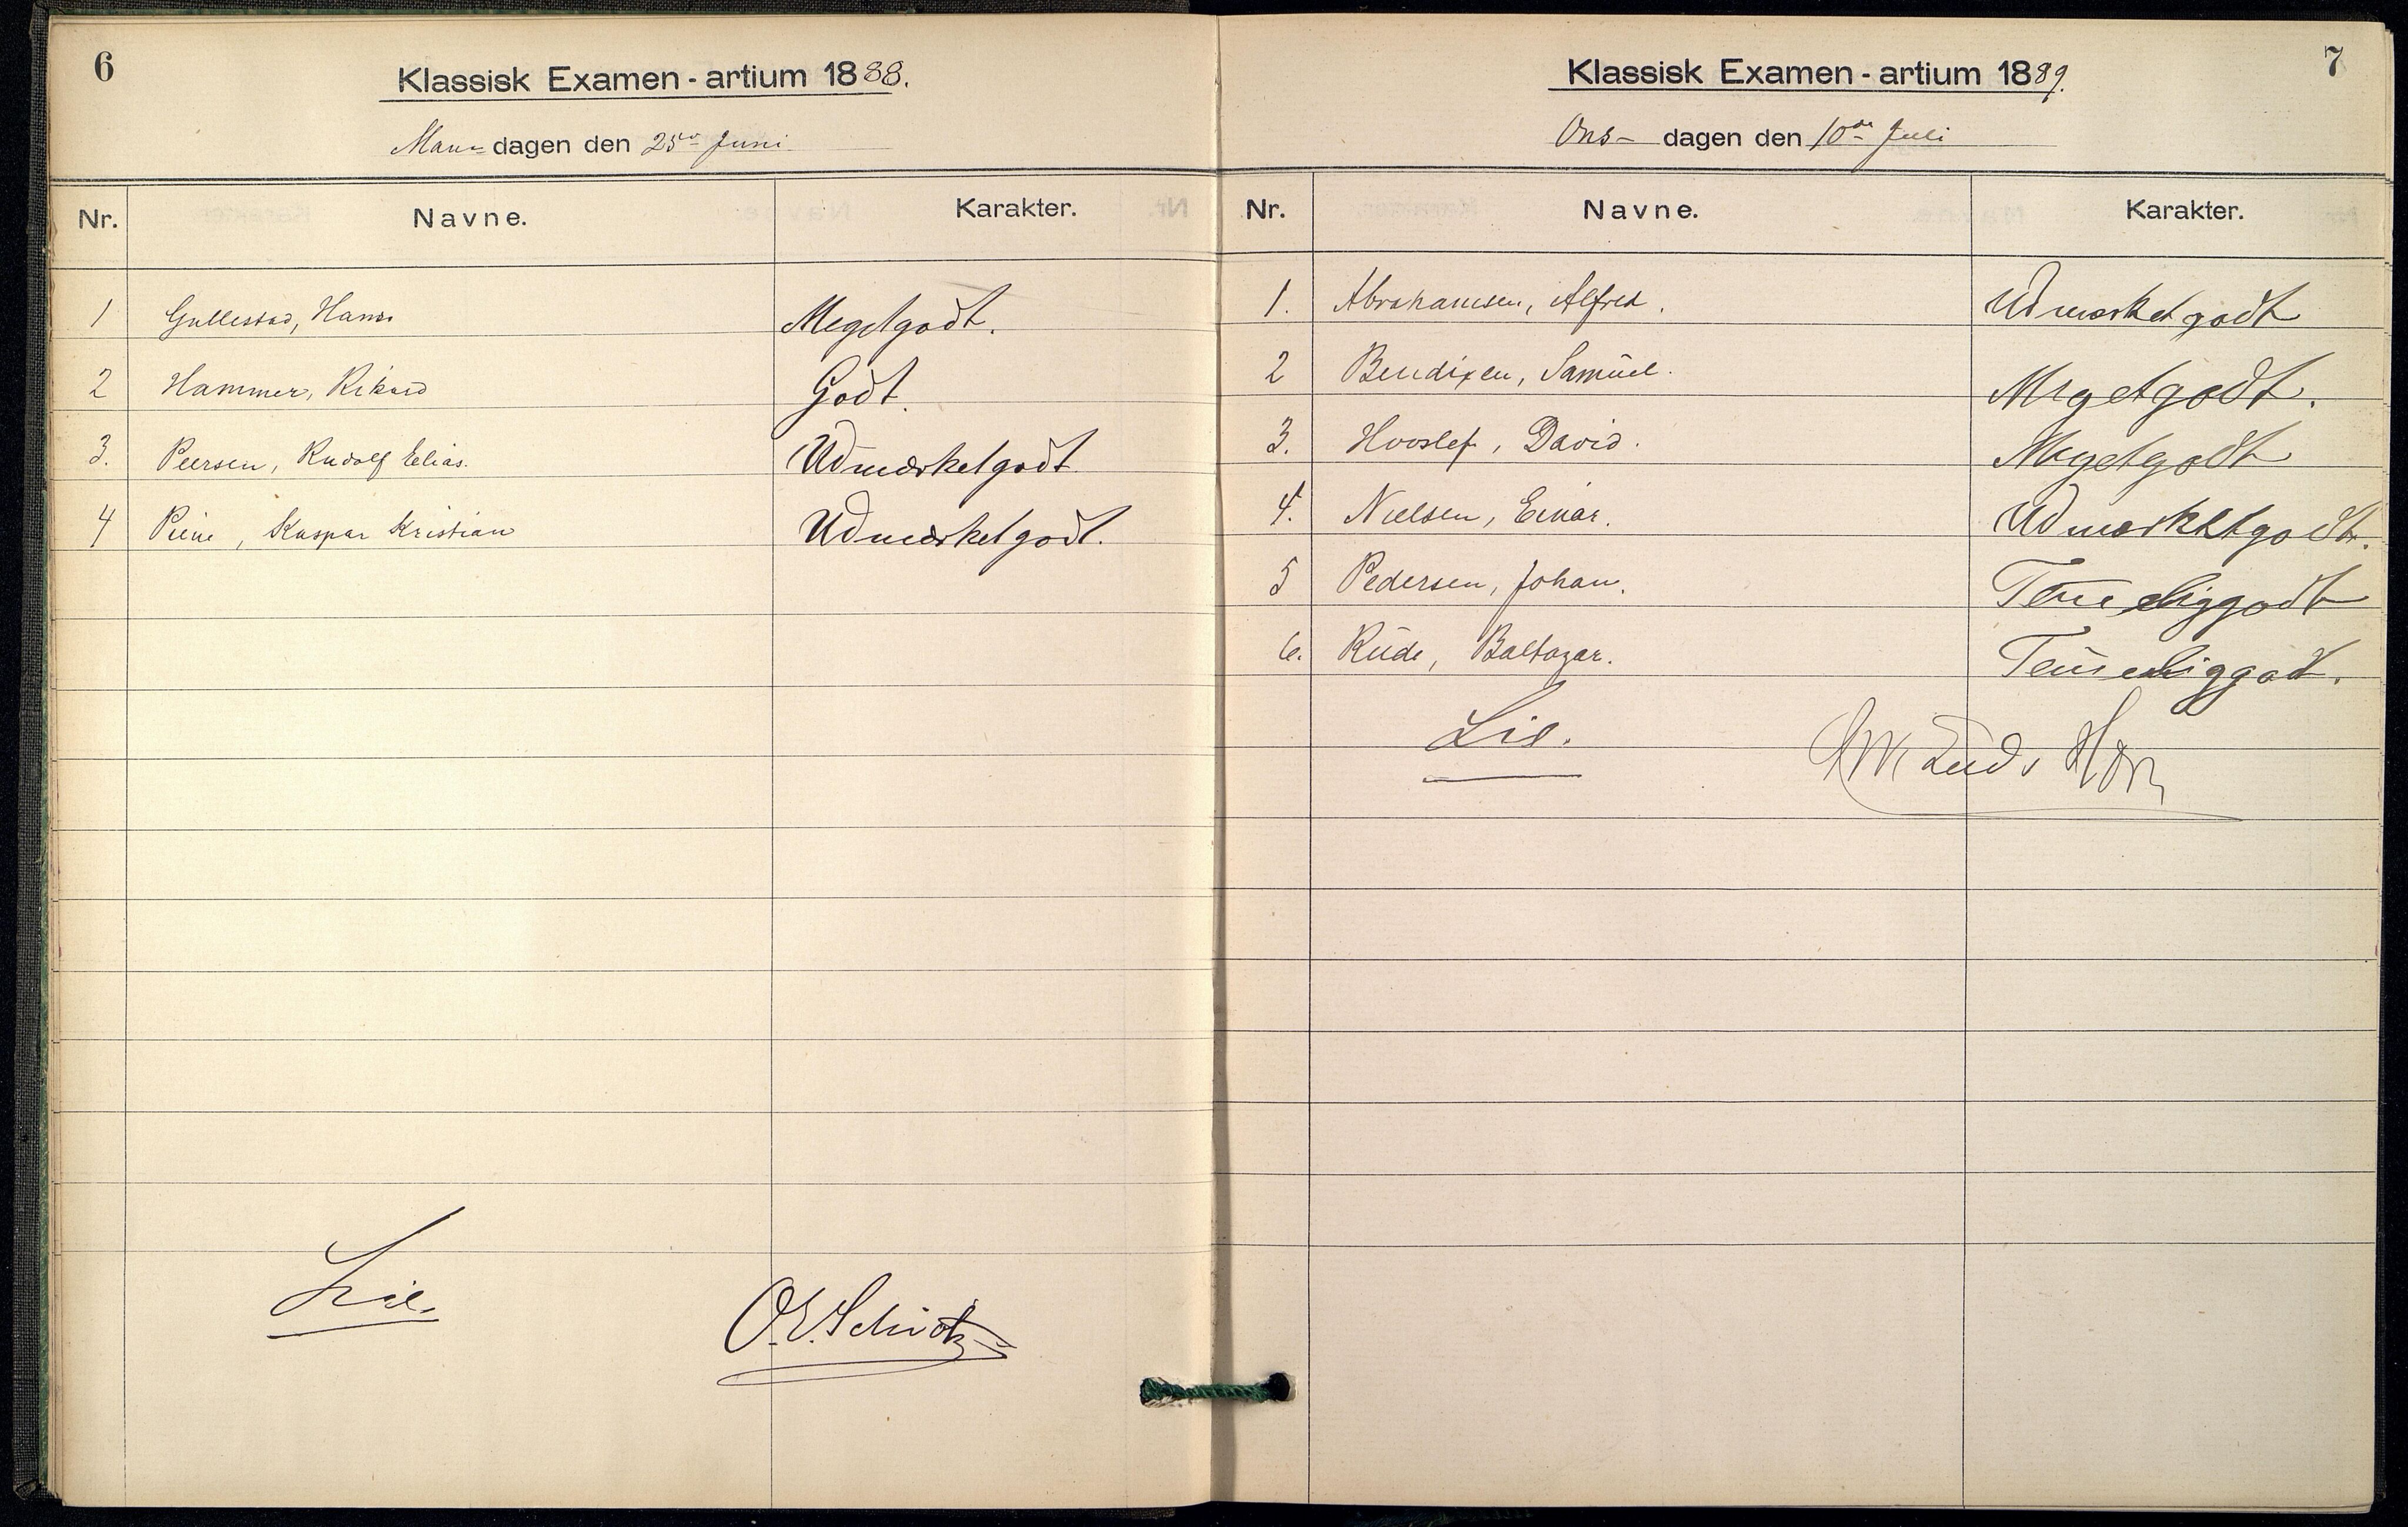 6
Klassisk Examen - artium 1888.
Man- dagen den 25de Juni
Nr. Navne. Karakter.
1 Gullestad, Hans Megetgodt.
2 Hammer, Rikard Godt.
3. Peersen, Rudolf Elias. Udmærketgodt
4 Piene, Kaspar Kristian Udmærketgodt.
Lie.
O.E. Schiøtz
7
Klassisk Examen - artium 1889.
Ons- dagen den 10de Juli
Nr. Navne. Karakter.
1. Abrahamsen, Alfred. Udmærketgodt
2 Bendixen, Samuel. Megetgodt.
3. Hovslef, David. Megetgodt
4. Nielsen, Einar. Udmærketgodt.
5 Pedersen, Johan. Temeliggodt
6. Rude, Baltazar. Temeliggodt.
Lie.